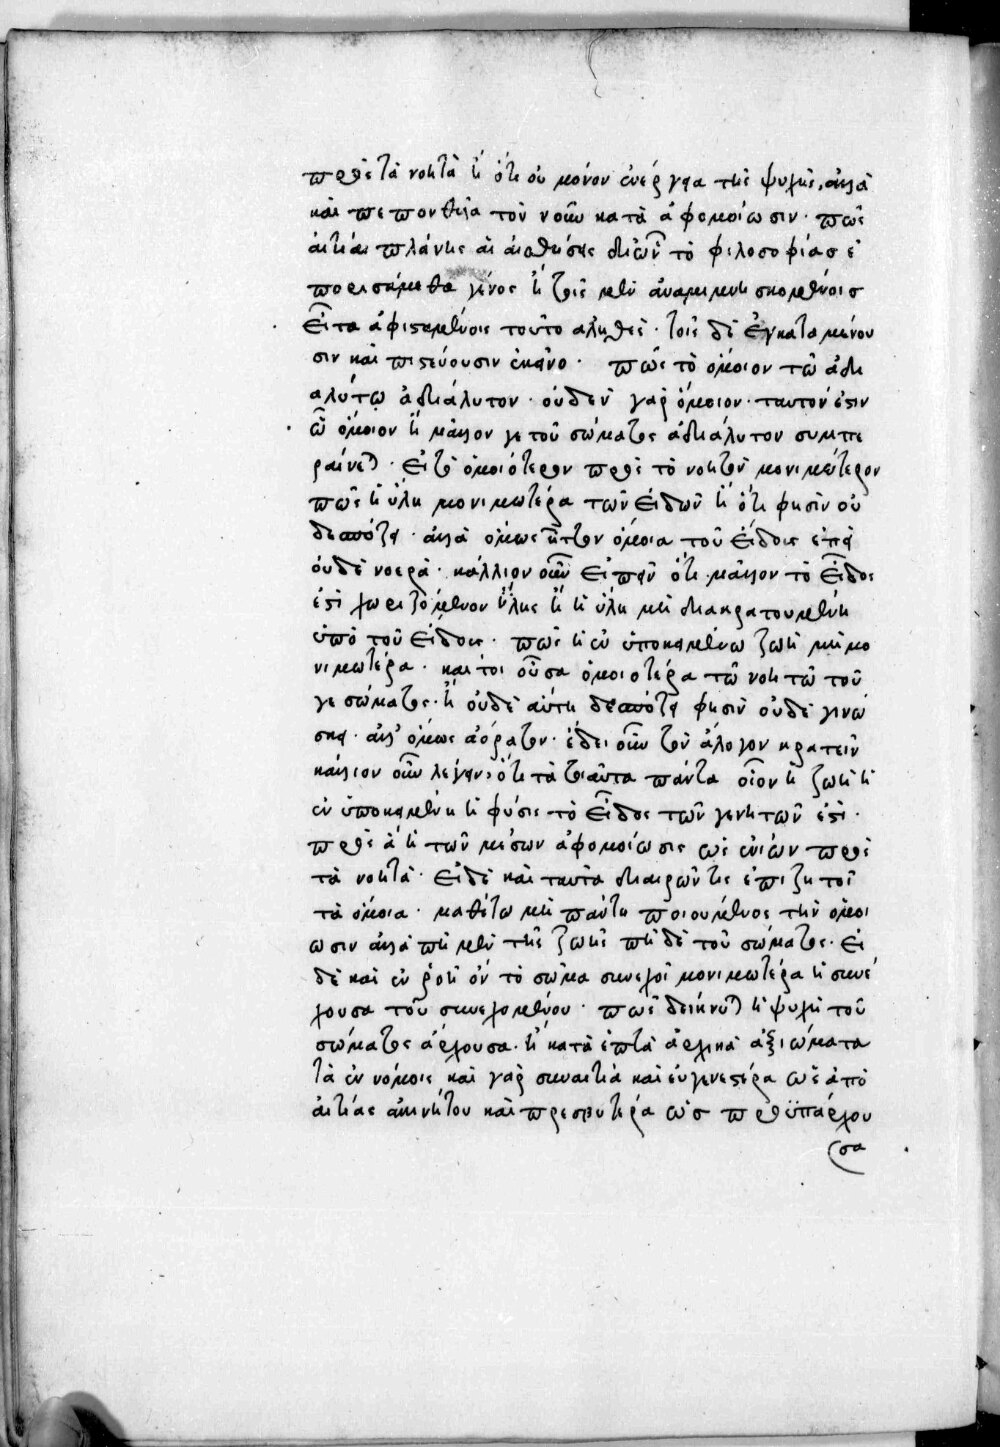 πρὸς τὰ νοητὰ ἢ ὅτι οὐ μόνον ἐνέργεια τῆς ψυχῆς, ἀλλὰ
καὶ πεπονθυῖα τὸν νοῦν κατὰ ἀφομοίωσιν· πῶς
αἰτίαι πλάνης αἱ αἰσθήσεις δι' ὧν τὸ φιλοσοφίας ἐ
πορισάμεθα γένος ἢ τοῖς μὲν ἀναμιμνησκομένοις
εἶτα ἀφισταμένοις τοῦτο ἀληθές· τοῖς δὲ ἐγκαταμένου
σιν καὶ πιστεύουσιν ἐκεῖνο· πῶς τὸ ὅμοιον τῶ ἀδι
αλύτῳ ἀδιάλυτον· οὐδὲν γὰρ ὅμοιον· ταυτόν ἐστιν
ὧ ὅμοιον ἢ μᾶλλον γε τοῦ σώματος ἀδιάλυτον συμπε
ραίνεται· εἰ τὸ ὁμοιότερον πρὸς τὸ νοητὸν μονιμώτερον
πῶς ἡ ὕλη μονιμωτέρα τῶν εἰδῶν ἢ ὅτι φησὶν οὐ
δεαπότε· ἀλλὰ ὅμως ἧττον ὁμοία τοῦ εἴδους ἐπεὶ
οὐδὲ νοερά· κάλλιον οὖν εἰπεῖν ὅτι μᾶλλον τὸ εἶδος
ἐστὶ χωριζόμενον ὕλης ἢ ἡ ὕλη μὴ διακρατουμένη
ὑπὸ τοῦ εἴδους· πῶς ἡ ἐν ὑποκειμένω ζωὴ μὴ μο
νιμωτέρα· καίτοι οὖσα ὁμοιοτέρα τῶ νοητῶ τοῦ
γε σώματος· ἢ οὐδὲ αὕτη δεαπότε φησὶν οὐδὲ γινώ
σκει· ἀλλ' ὅμως ἀόρατον· ἔδει οὖν τὸν ἄλογον κρατεῖν
κάλλιον οὖν λέγειν, ὅτι τὰ τοιαῦτα πάντα οἷον ἡ ζωὴ ἡ
ἐν ὑποκειμένη ἡ φύσις τὸ εἶδος τῶν γενητῶν ἐστί·
πρὸς ἃ ἡ τῶν μέσων ἀφομοίωσις ὡς ἐνίων πρὸς
τὰ νοητά· εἰ δὲ καὶ ταῦτα διαιρῶν τις ἐπιζητοῖ
τὰ ὅμοια· μαθέτω μὴ πάντη ποιουμένος τὴν ὁμοί
ωσιν ἀλλὰ πῆ μὲν τῆς ζωῆς πῆ δὲ τοῦ σώματος· εἰ
δὲ καὶ ἐν ῥοῆ ὂν τὸ σῶμα συνέχοι μονιμωτέρα ἡ συνέ
χουσα τοῦ συνεχομένου· πῶς δείκνυται ἡ ψυχὴ τοῦ
σώματος ἄρχουσα· ἢ κατὰ ἑπτὰ ἀρχικὰ ἀξιώματα
τὰ ἐν νόμοις καὶ γὰρ συναιτία καὶ εὐγενεστέρα ὡς ἀπὸ
αἰτίας ἀκινήτου καὶ πρεσβυτέρα ὡς προϋπάρχου
σα